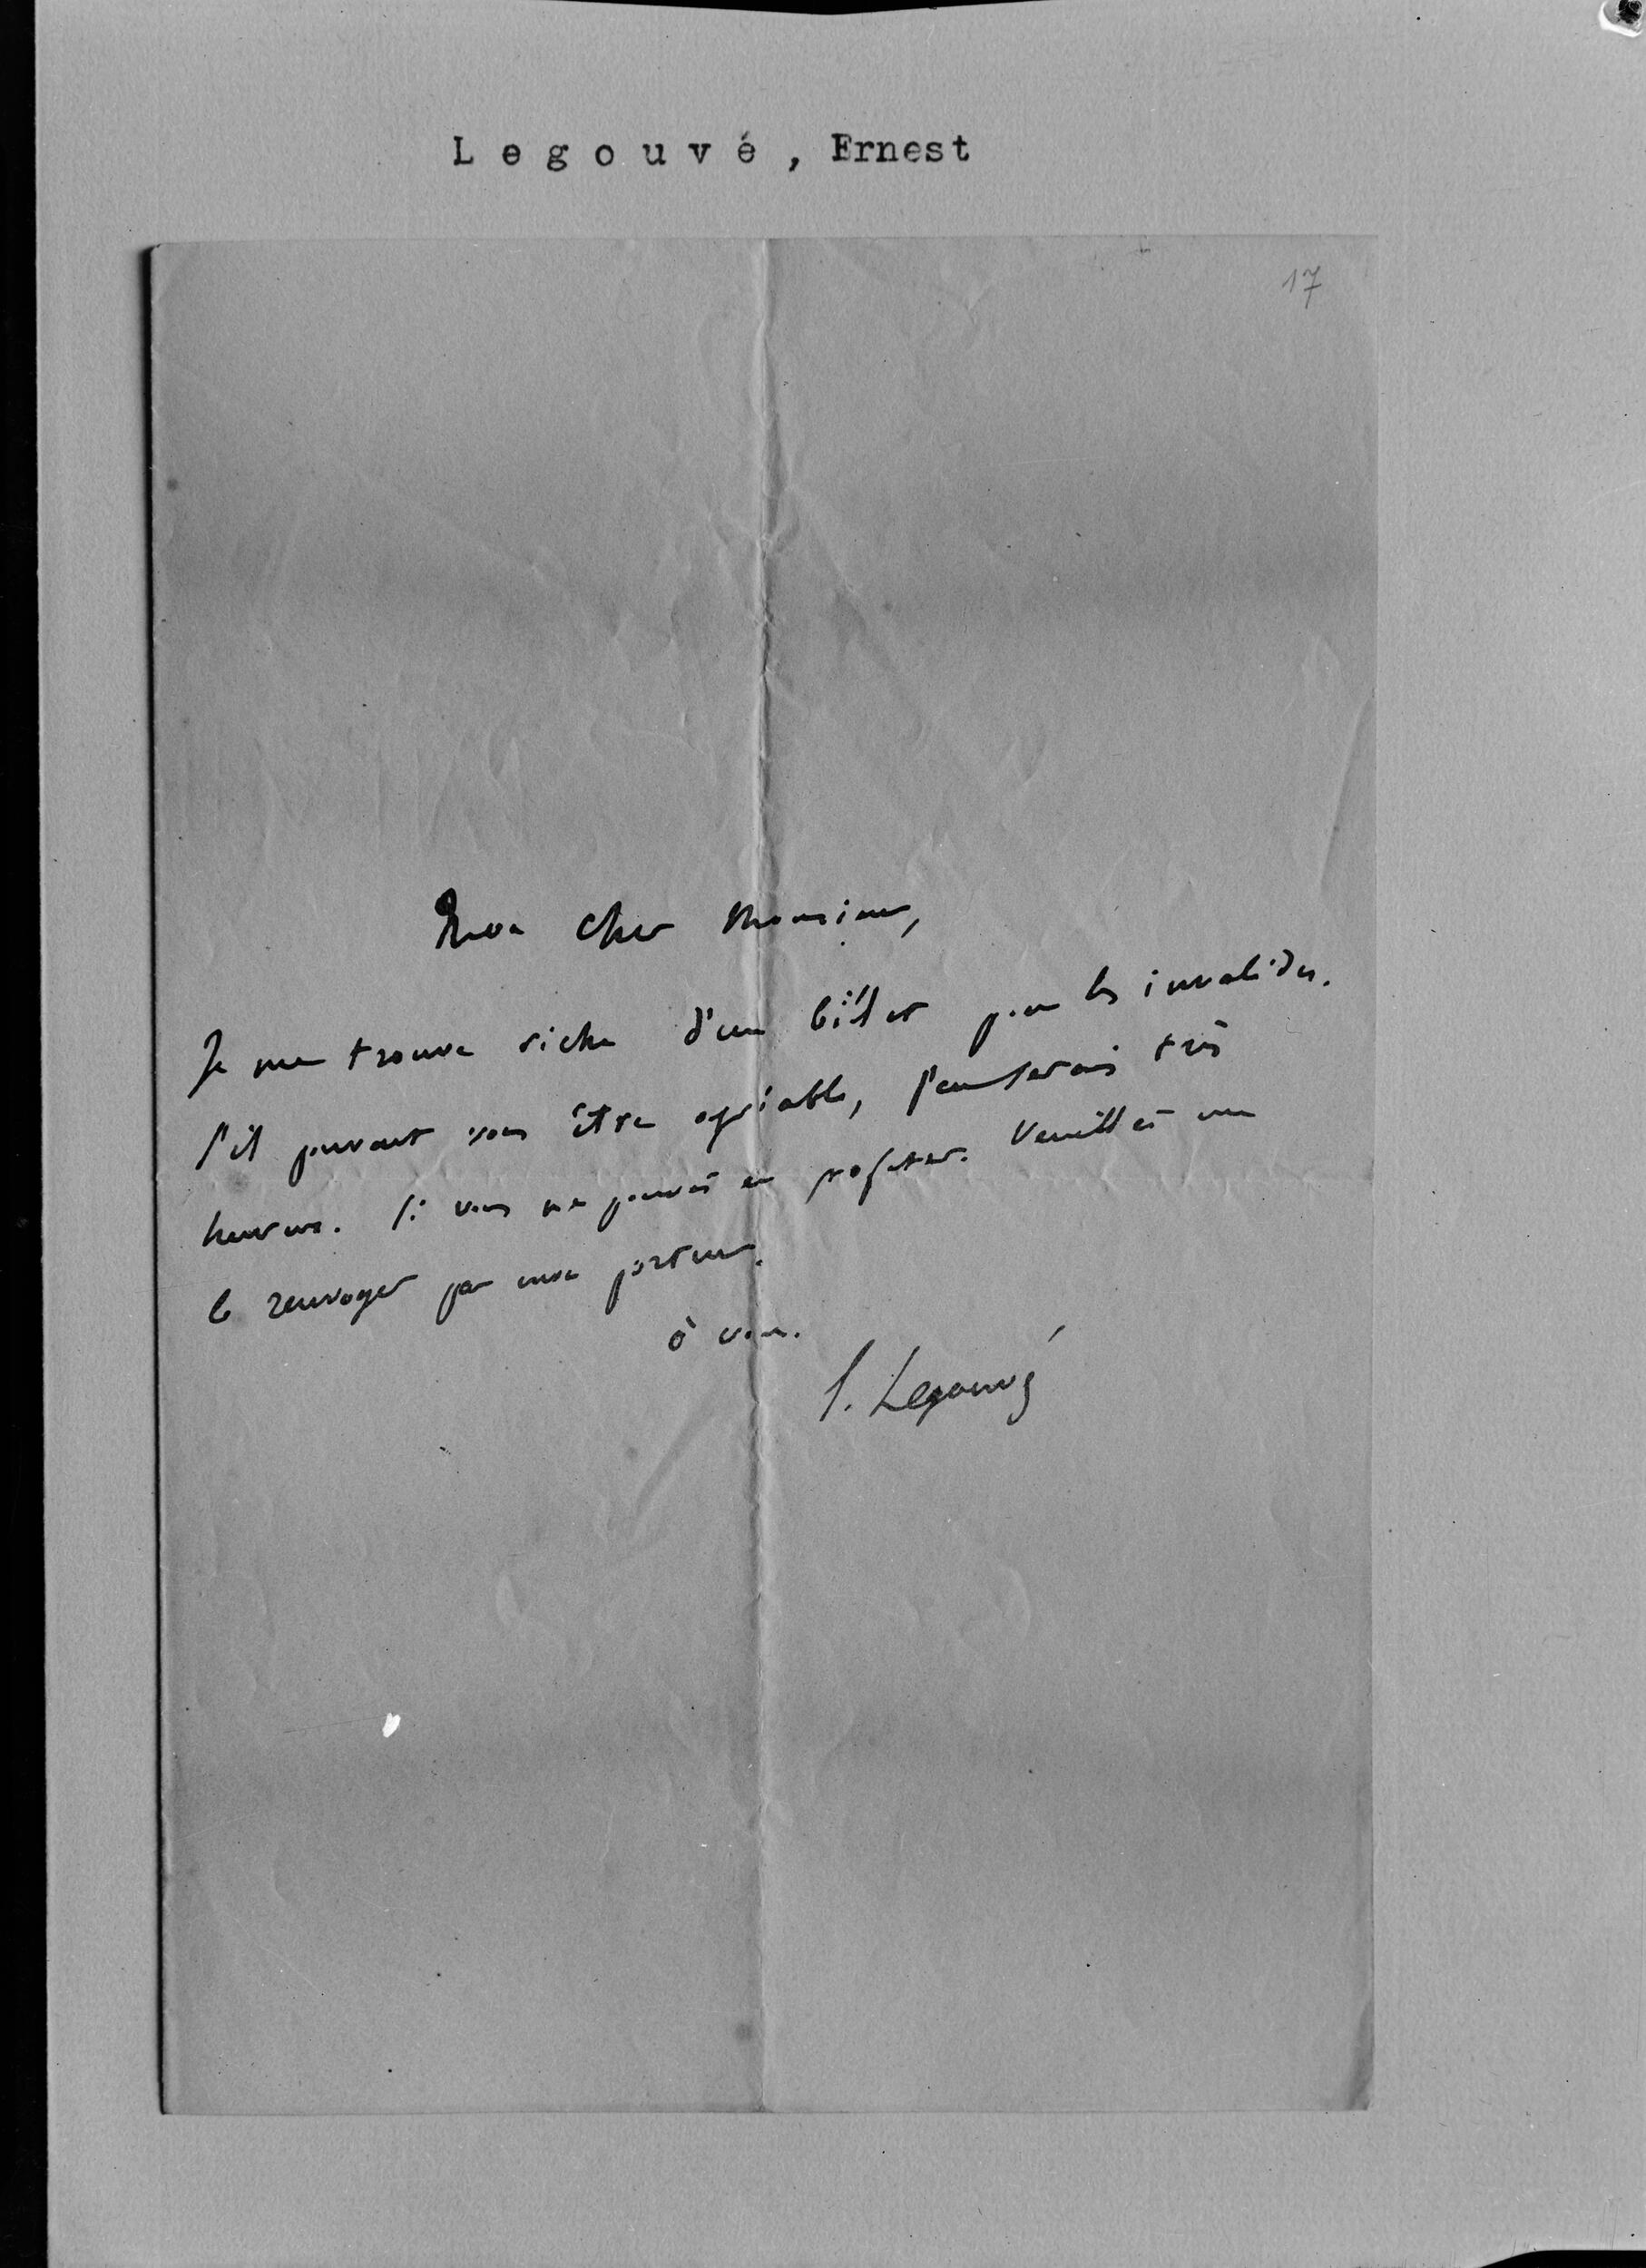 Legouvé, Ernest
17
Mon cher Monsieur,
Je me trouve riche d'un billet pour les invalides.
S'il pouvait vous être agréable, j'en serais très
heureux. Si vous ne pouvés en profiter. Veuillés me
le renvoyer par mon porteur.
à vous.
E. Legouvé